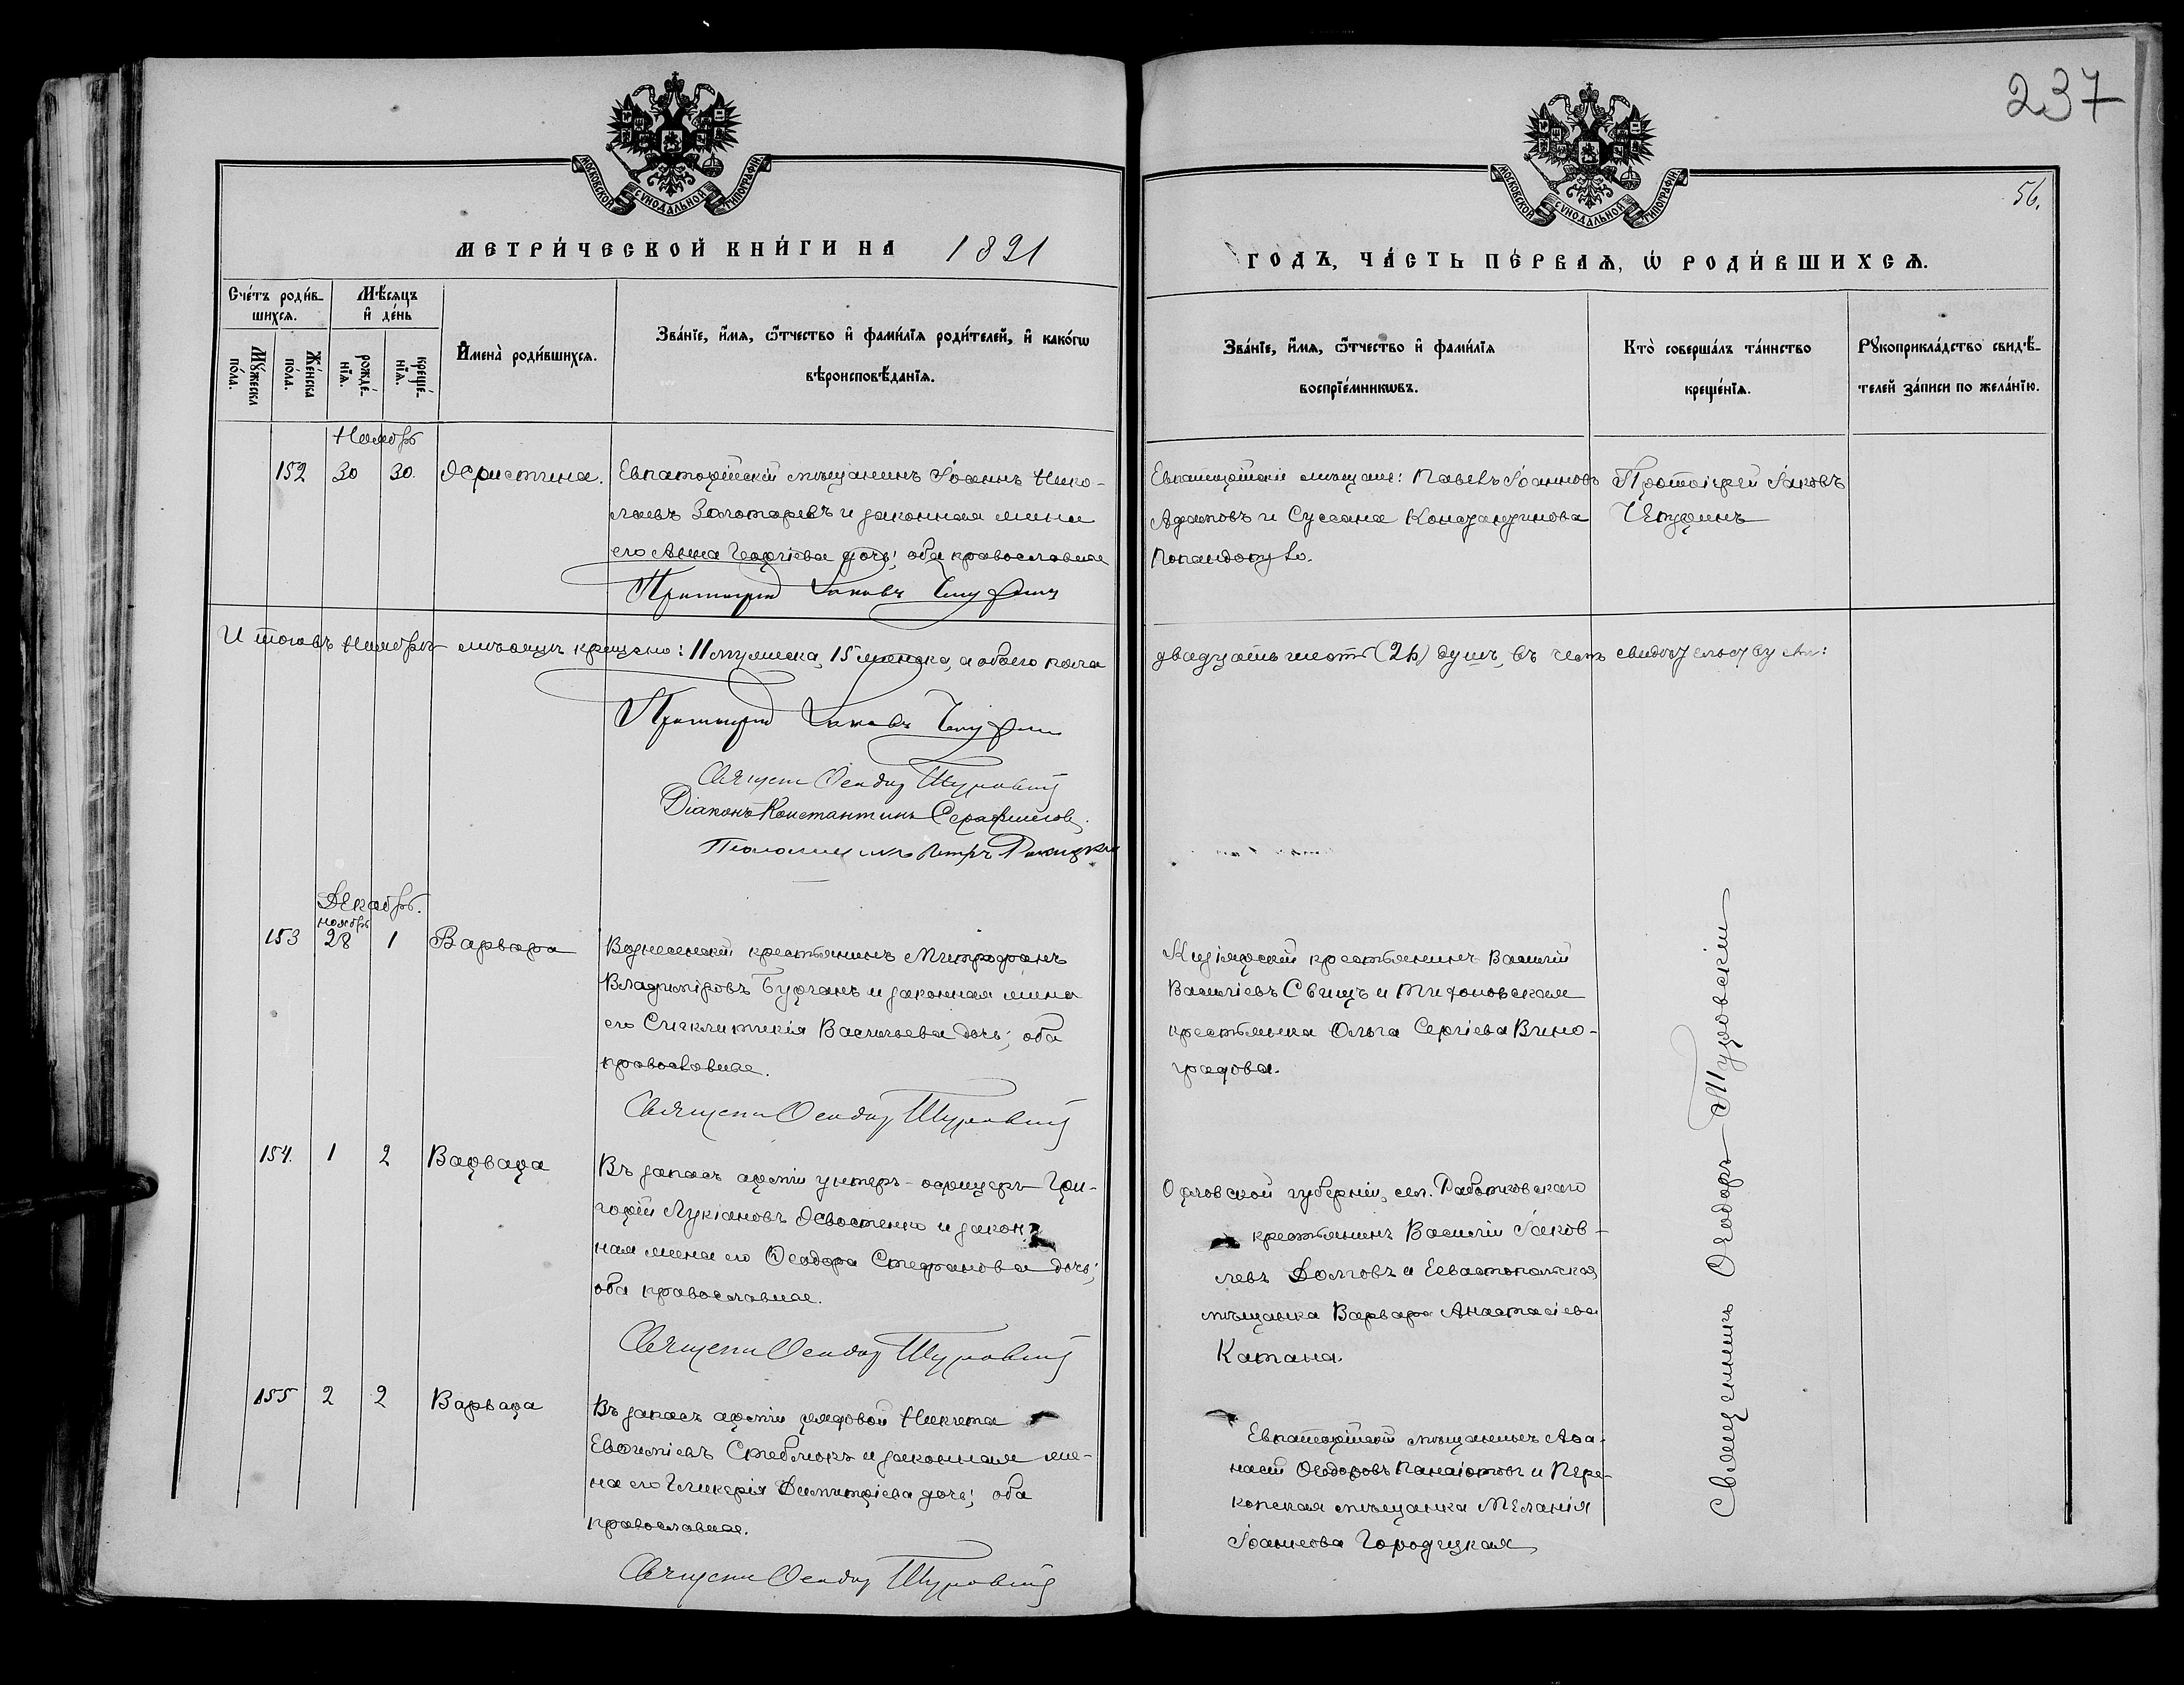 237
56.
МОСКОВСКОЙ СѴНОДАЛЬНОЙ ТИПОГРАФІИ
МОСКОВСКОЙ СѴНОДАЛЬНОЙ ТИПОГРАФІИ
МЕТРИ́ЧЕСКОЙ КНИ́ГИ НА 1891
ГОДЪ, ЧА́СТЬ ПЕ́РВАѦ, Ѡ РОДИ́ВШИХСѦ.
Сче́тъ роди́в-
шихсѧ.
Мѣ́сѧцъ
и҆ де́нь
Мꙋ́жеска
по́ла.
Же́нска
по́ла.
рожде́-
нїѧ.
креще́-
нїѧ.
И҆мена̀ роди́вшихсѧ.
Зва́нїе, и҆́мѧ, ѻ҆́тчество и҆ фами́лїѧ роди́телей, и҆ како́гѡ
вѣроисповѣ́данїѧ.
Зва́нїе, и҆́мѧ, ѻ҆́тчество и҆ фами́лїѧ
воспрїе́мникѡвъ.
Кто̀ соверша́лъ та́инство
креще́нїѧ.
Рꙋкоприкла́дство свидѣ́-
телей за́писи по жела́нїю.
Ноябрь
152 30 30. Христина.
Евпаторійскій мѣщанинъ Іоаннъ Нико-
лаевъ Золотаревъ и законная жена
его Анна Георгіева дочь; оба православные
Протоіерей Іаковъ Чепуринъ
Евпаторійскіе мѣщане: Павелъ Іоанновъ
Адамовъ и Суссана Константинова
Попандопуло.
Протоіерей Іаковъ
Чепуринъ
Итого въ Ноябрѣ мѣсяцѣ крещено: 11 мужеска, 15 женска, а обоего пола
двадцать шесть (26) душъ, въ чемъ свидѣтельствуемъ:
Протоіерей Іаковъ Чепуринъ
Священ Ѳеодоръ Туровскій
Діаконъ Константинъ Серафимовъ.
Псаломщикъ Петръ
Декабрь.
ноябрь
153 28 1 Варвара
Вознесенскій крестьянинъ Митрофанъ
Владиміровъ Бурганъ и законная жена
его Сигклитикія Васильева дочь; оба
православные.
Священ Ѳеодоръ Туровскій
крестьянинъ Василій
Васильевъ Свищъ и Тихоновская
крестьянка Ольга Сергіева Вино-
градова.
154. 1 2 Варвара
Въ запасѣ арміи унтеръ-офицеръ Гри-
горій Лукіановъ Хвостенко и закон-
ная жена его Ѳеодора Стефанова дочь;
оба православные.
Священ Ѳеодоръ Туровскій
Орловской губерніи, сел. Работковскаго
крестьянинъ Василій Іаков-
левъ Долговъ и Севастопольская
мѣщанка Варвара Анастасіева
Катана.
155 2 2 Варвара
Въ запасѣ арміи рядовой Никита
Евѳиміевъ Стеблюкъ и законная же-
на его Гликерія Димитріева дочь; оба
православные.
Священ Ѳеодоръ Туровскій
Евпаторійскій мѣщанинъ Аѳа-
насій Ѳеодоровъ Панаіотовъ и Пере-
копская мѣщанка Меланія
Іоаннова Городецкая
Священникъ Ѳеодоръ Туровскій